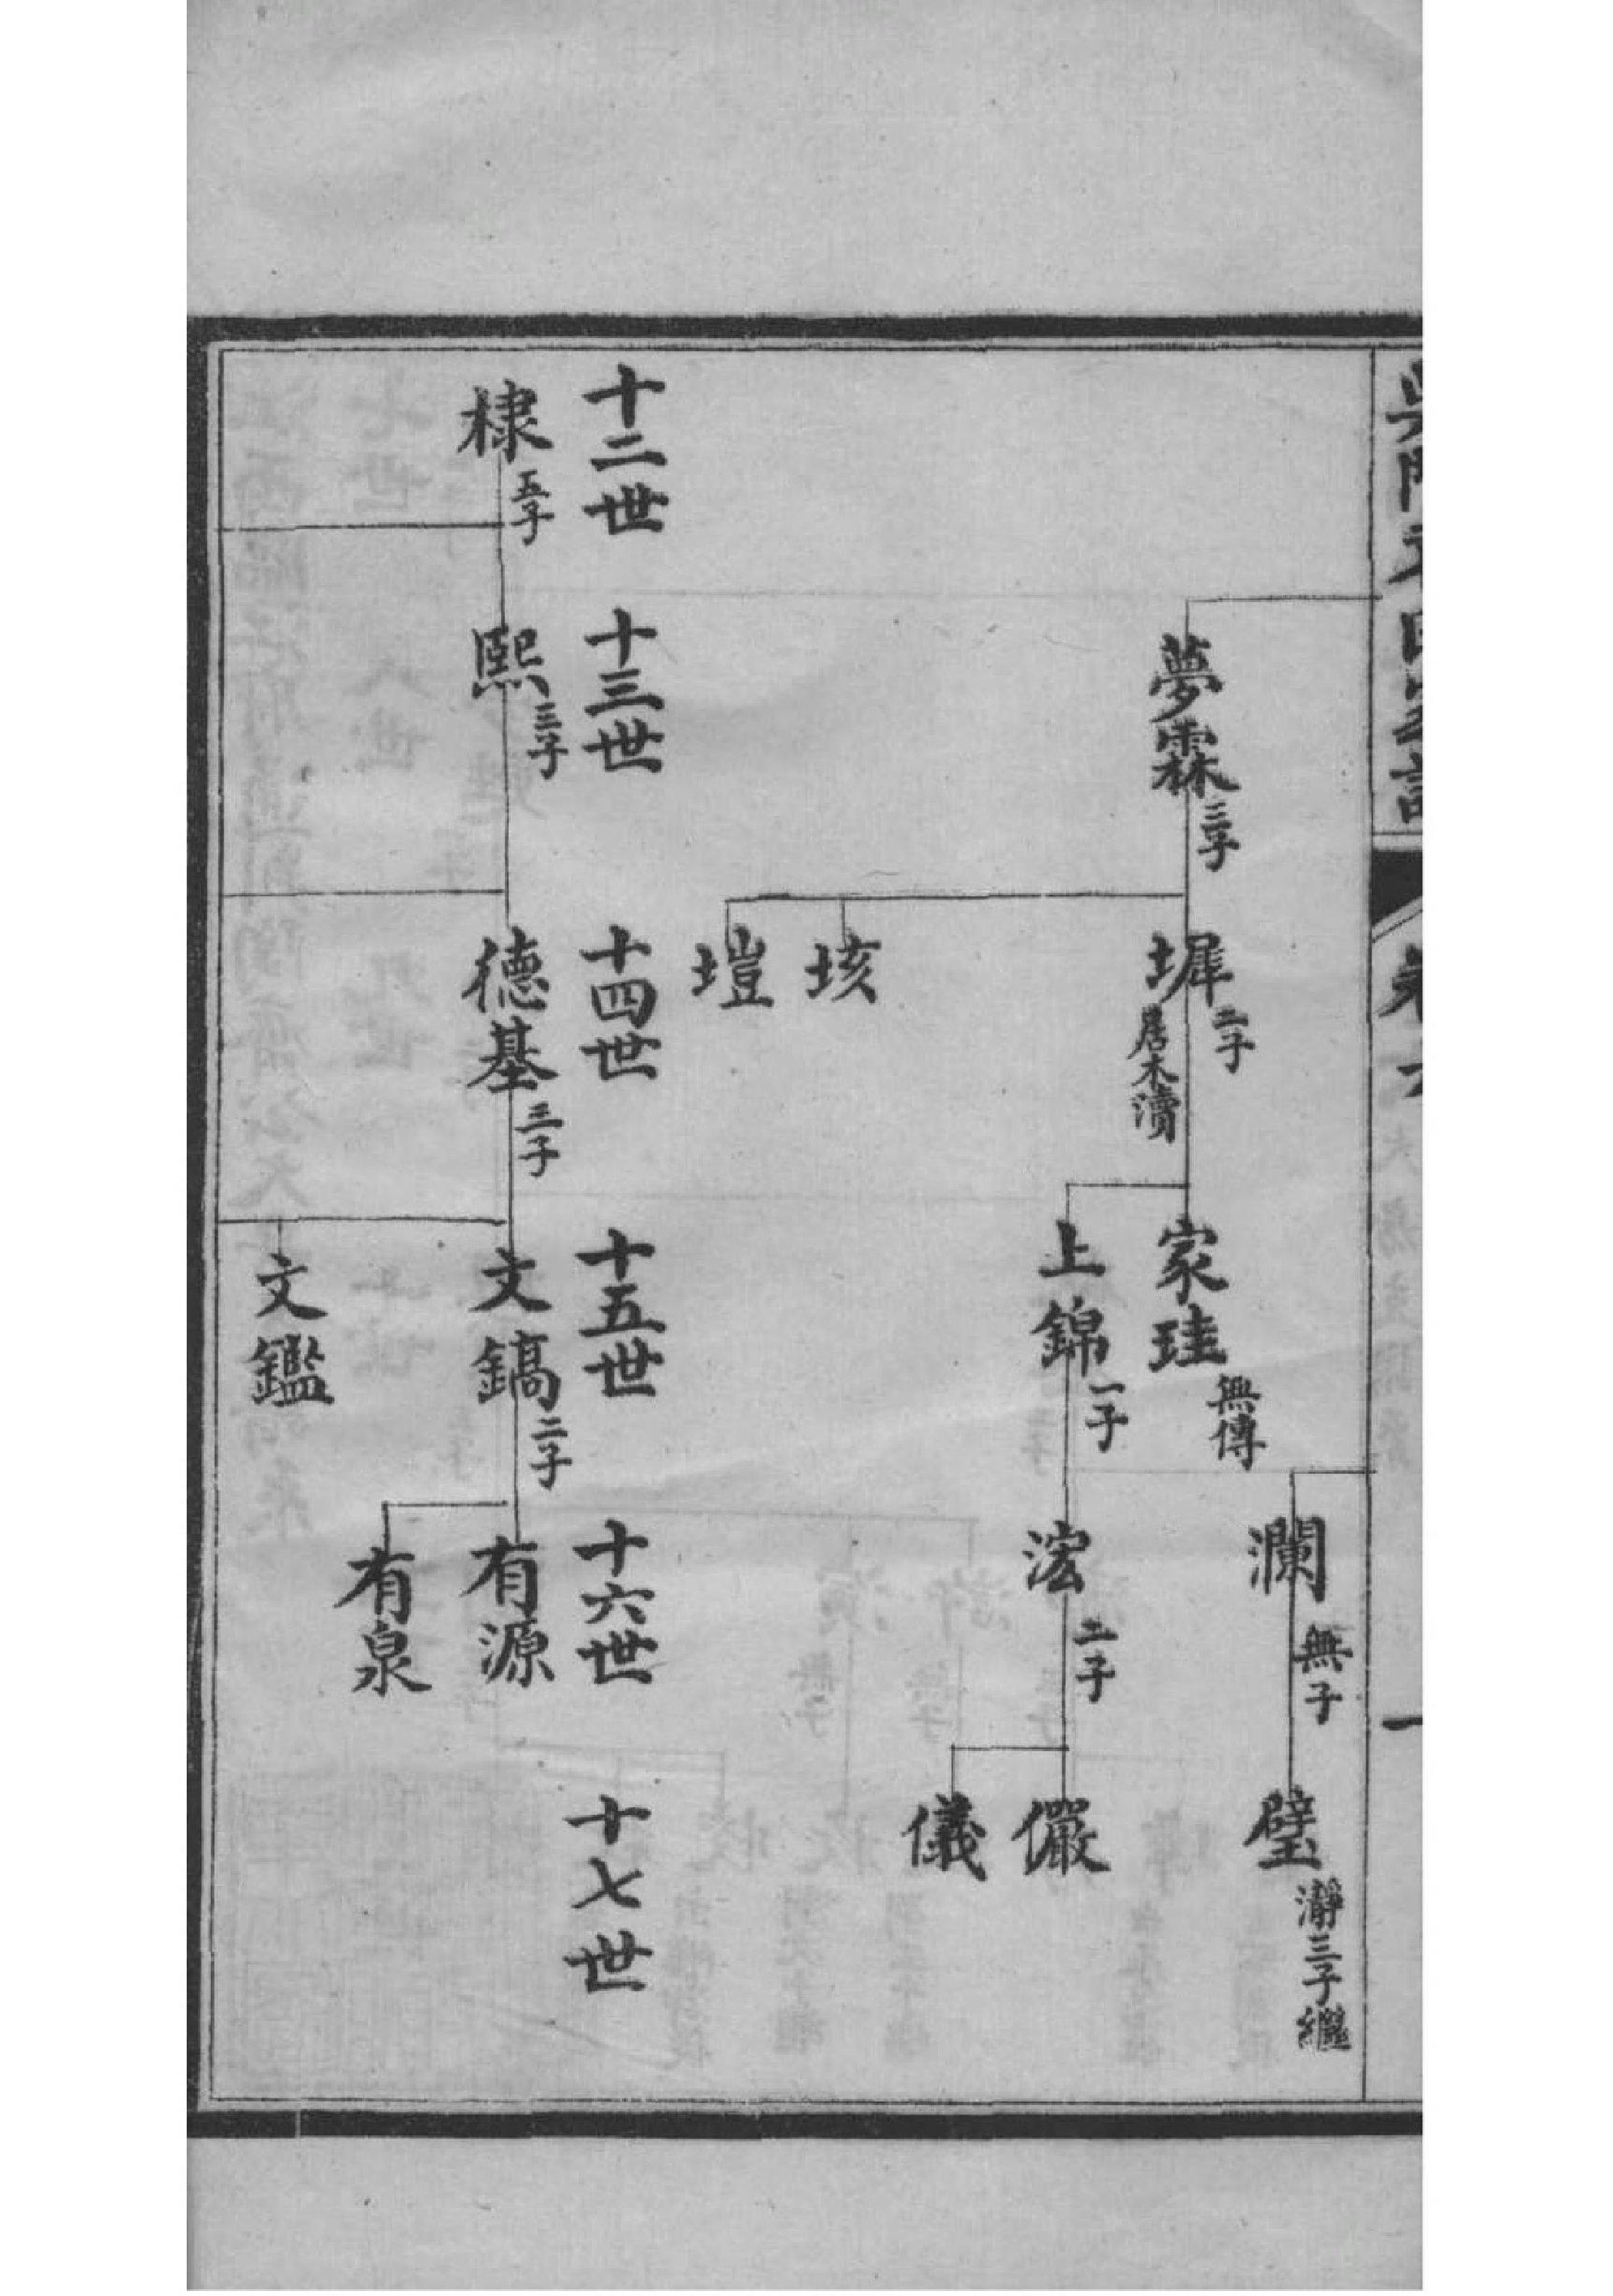 卷六
一
瀾 無子
璧 瀞三子繼
夢霖 三子
墀 二子 居木瀆
家珪 無傳
上錦 一子
浤 二子
儼
儀
垓
塏
十二世
十三世
十四世
十五世
十六世
十七世
棣 五子
熙 三子
德基 三子
文鎬 二子
有源
有泉
文鑑